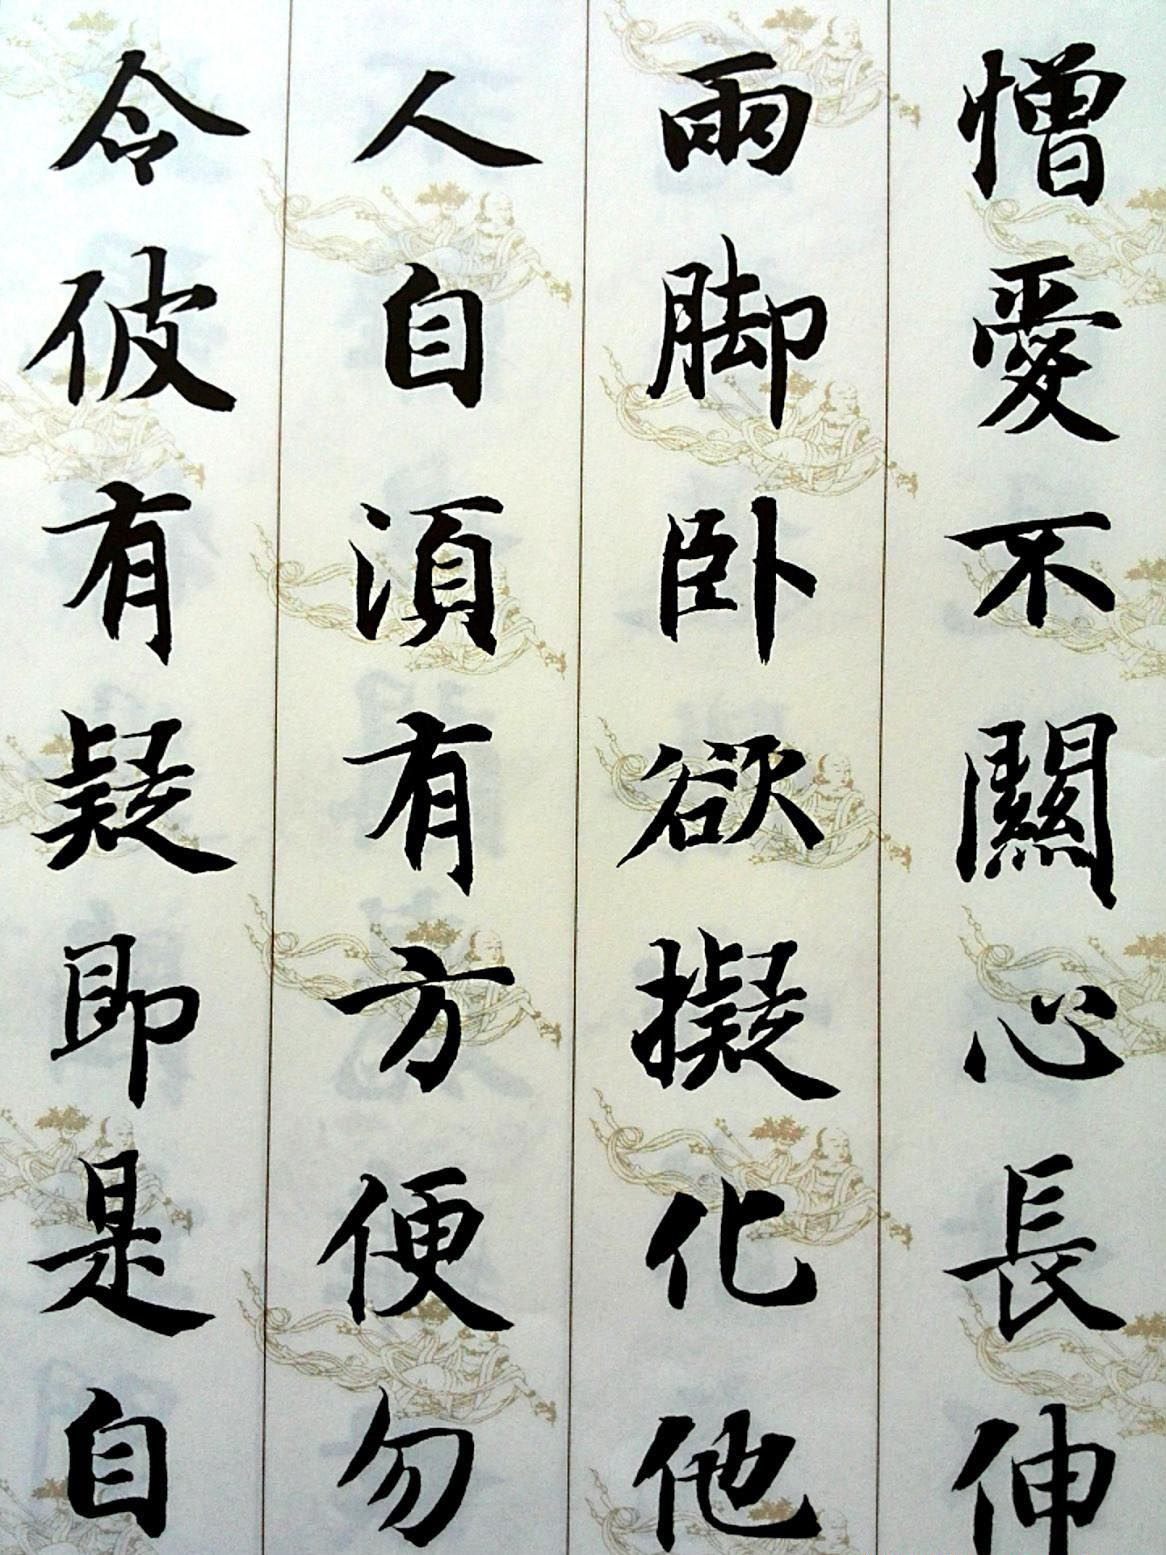 憎愛不關心長伸
兩脚卧欲擬化他
人自須有方便勿
令彼有疑即是自